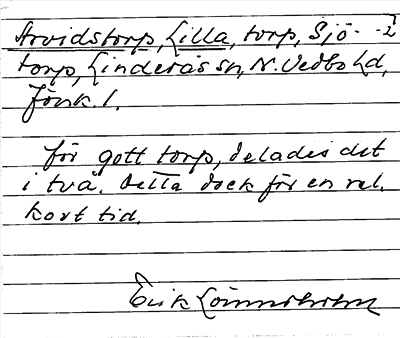 Arvidstorp, Lilla, torp, Sjö- -2
torp, Linderås sn, N. Vedbo hd,
Jönk. l.
För gott torp, delades det
i två. Detta dock för en rel.
kort tid.
Erik